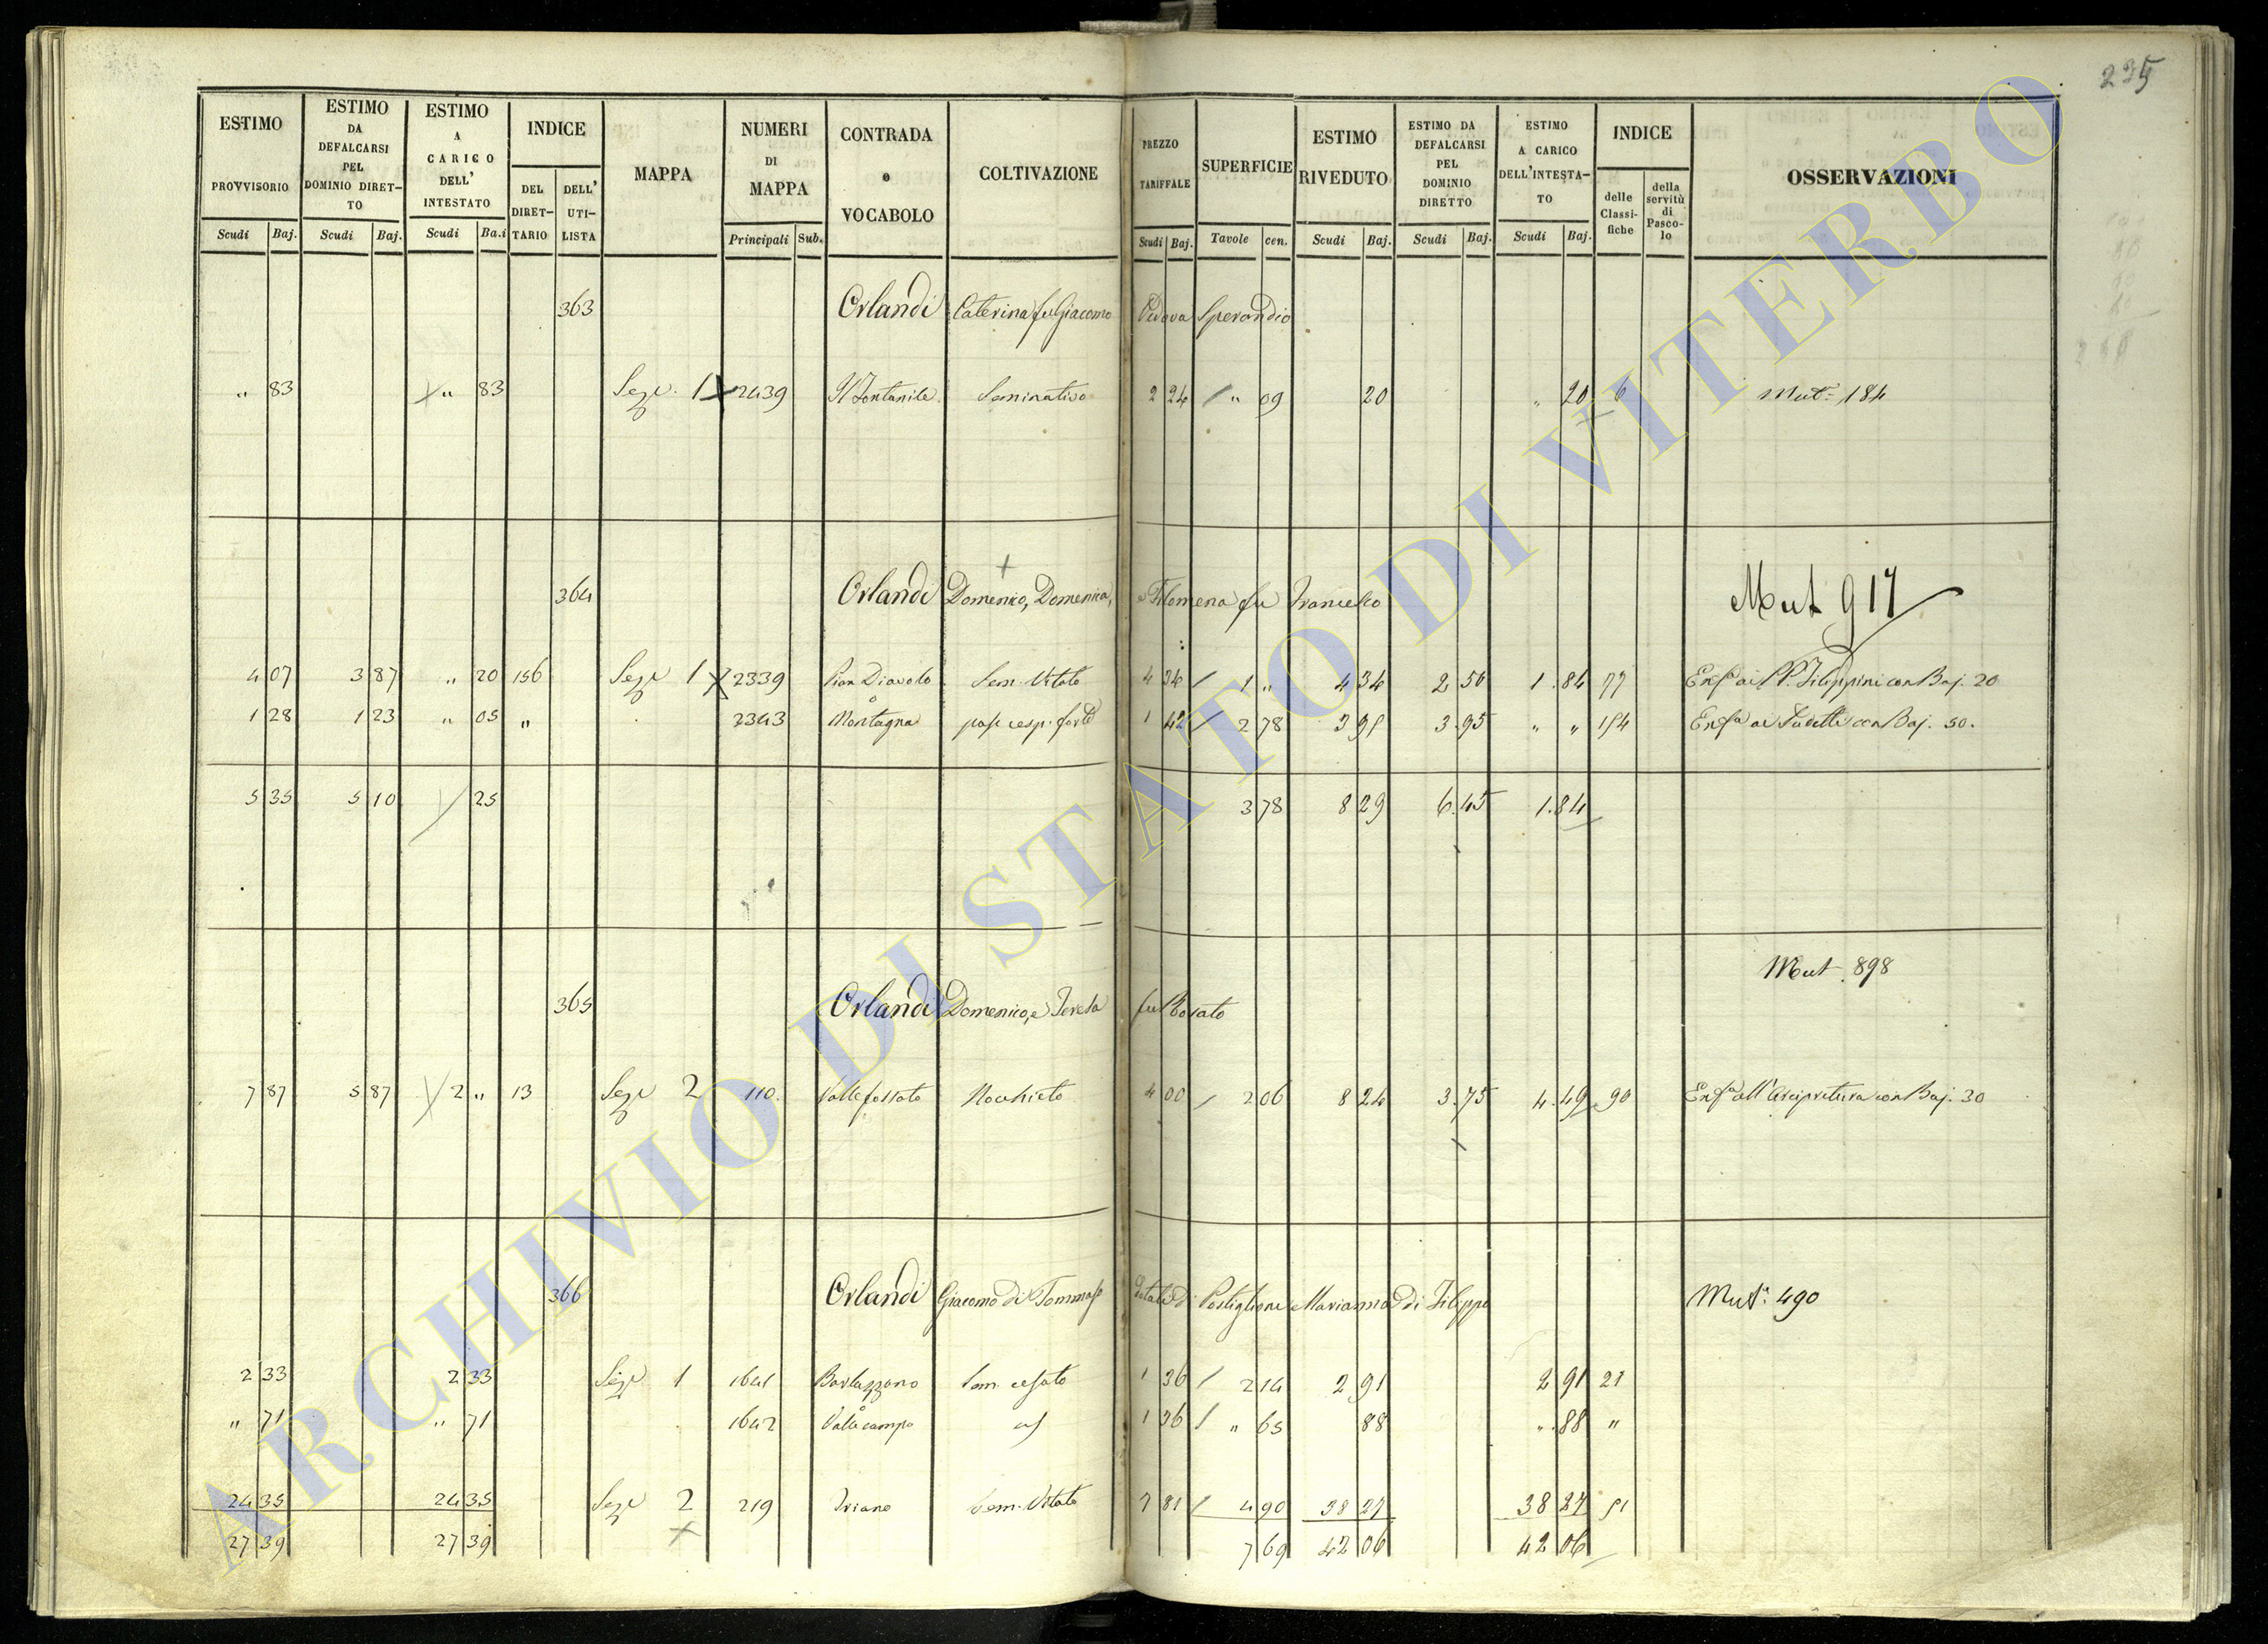 235
ESTIMO PROVVISORIO Scudi Baj.
ESTIMO DA DEFALCARSI PEL DOMINIO DIRETTO Scudi Baj.
ESTIMO A CARICO DELL' INTESTATO Scudi Ba.i
INDICE DEL DIRETTARIO DELL' UTILISTA
MAPPA
NUMERI DI MAPPA Principali Sub.
CONTRADA o VOCABOLO
COLTIVAZIONE
PREZZO TARIFFALE Scudi Baj.
SUPERFICIE Tavole cen.
ESTIMO RIVEDUTO Scudi Baj.
ESTIMO DA DEFALCARSI PEL DOMINIO DIRETTO Scudi Baj.
ESTIMO A CARICO DELL'INTESTATO Scudi Baj.
INDICE delle Classifiche della servitù di Pascolo
OSSERVAZIONI
363 Orlandi Caterina fu Giacomo Vedova Sperandio
" 83 " 83 Sez.e 1 2439 Il Fontanile Seminativo 2 24 " 09 20 " 20 6 Mut.e 184
364 Orlandi Domenico, Domenica, e Filomena fu Francesco Mut 917
4 07 3 87 " 20 156 Sez.e 1 2339 Pian Diavolo Sem. Vitato 4 34 1 " 4 34 2 50 1.84 77 Enf.a ai PP. Filippini con Baj. 20
1 28 1 23 " 05 " 2343 Montagna pasc cesp. forte 1 42 2 78 3 95 3.95 " " 154 Enf.a ai con Baj. 50.
5 35 5 10 25 3 78 8 29 6.45 1.84
Mut. 898
365 Orlandi Domenico, e Teresa fu Rosato
7 87 5 87 2 " 13 Sez.e 2 110. Valle fossato Nocchieto 4 00 2 06 8 24 3.75 4.49 90 Enf.a all'Arcipretura con Baj. 30
366 Orlandi Giacomo di Tommaso Dotale di Postiglioni Marianna di Filippo Mut.e 490
2 33 2 33 Sez.e 1 1641 Barlazzano Sem. cesato 1 36 2 14 2 91 2 91 21
" 71 " 71 1642 Valle campo 1 36 " 65 88 ".88 "
24 35 24 35 Sez.e 2 219 Triano Sem. Vitato 7 81 4 90 38 27 38 27 51
27 39 27 39 7 69 42 06 42 06
ARCHIVIO DI STATO DI VITERBO